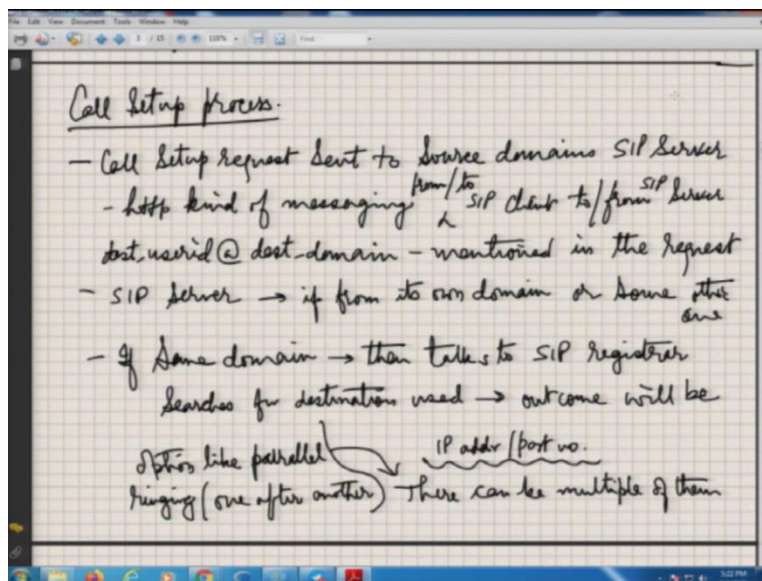 File Edit View Document Tools Window Help
3 / 15 118% Find
Call Setup process.
- Call Setup request Sent to Source domains SIP Server
- http kind of messaging from/to SIP client to/from SIP Server
dest_userid @ dest_domain - mentioned in the request
- SIP Server → if from its own domain or some other one
- If Same domain → then talks to SIP registrar
Searches for destination used → outcome will be
IP addr/port no.
option like parrallel
ringing (one after another) There can be multiple of them
5:22 PM